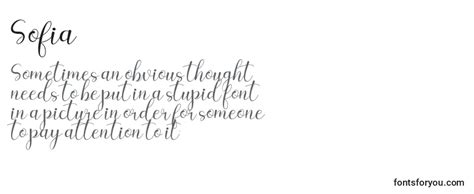 Sofia
Sometimes an obvious thought
needs to be put in a stupid font
in a picture in order for someone
to pay attention to it
fontsforyou.com